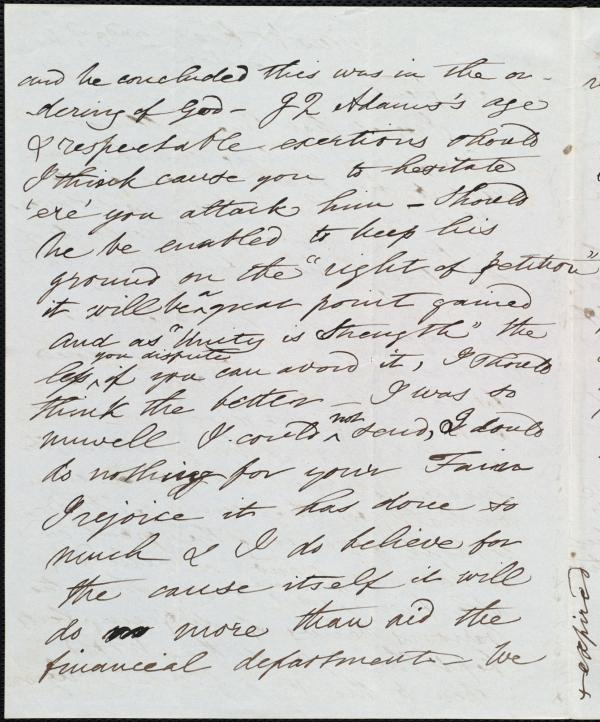 and he concluded this was in the or-
-dering of God - J Q Adams's age
& respectable exertions should
I think cause you to hesitate
'ere' you attack him - Should
he be enabled to keep his
ground on the "right of petition"
it will be ^a great point gained
And as "Unity is Strength" the
less ^you dispute if you can avoid it, I should
think the better - I was so
unwell I could ^not send, I could
do nothing for your Fair
I rejoice it has done so
much & I do believe for
the cause itself it will
do more than aid the
financial department - We
& expired